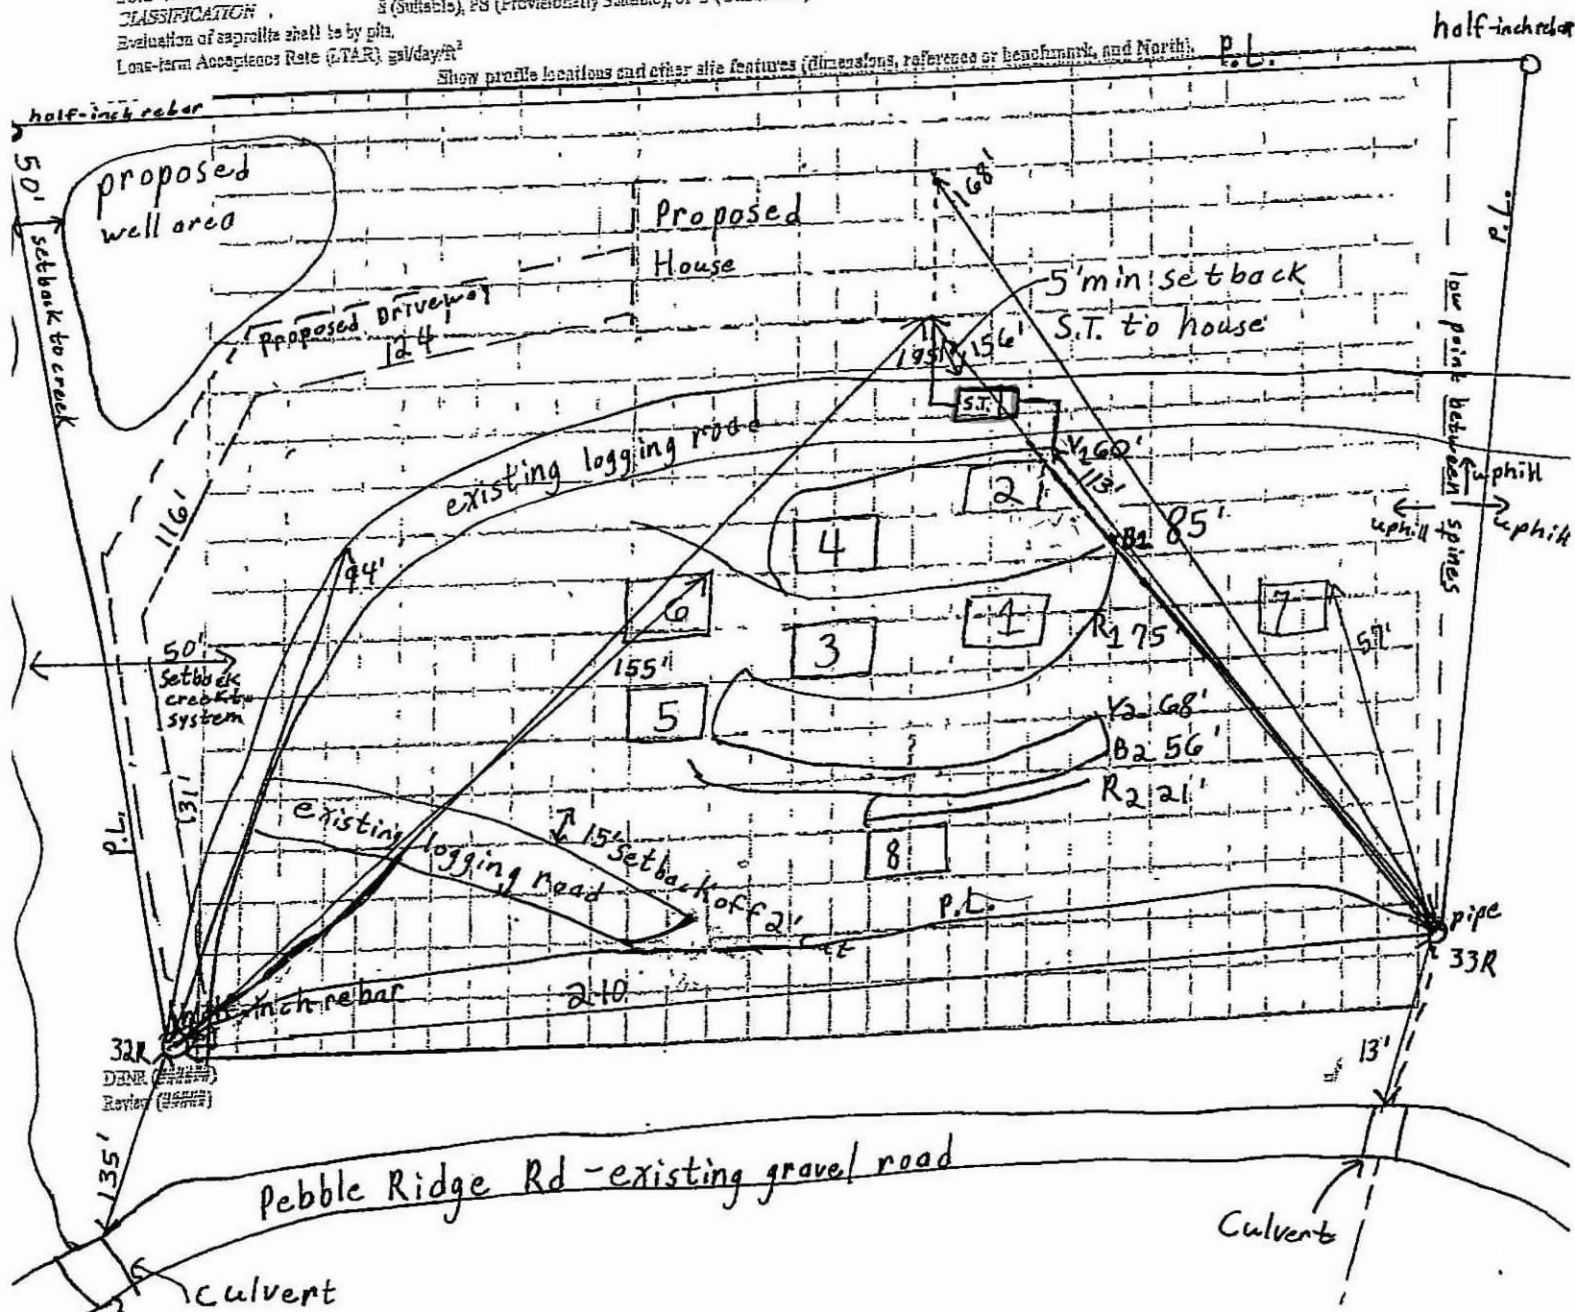 CLASSIFICATION
S (Suitable), PS (Provisionally Suitable), or
Evaluation of saprolite shall be by pits.
Long-term Acceptance Rate (LTAR) gal/day/ft²
Show profile locations and other site features (dimensions, reference or benchmark, and North).
P.L.
half-inch rebar
half-inch rebar
50'
setback to creek
proposed
well area
Proposed
House
168'
P.L.
5' min setback
S.T. to house
Proposed Driveway
124'
195'
156'
S.T.
low point between spines
existing logging road
116'
Y1 60'
113'
2
uphill
uphill
uphill
94'
4
B1
85'
6
1
7
50'
setback
creek to
system
155'
3
R1 75'
57'
5
Y2 68'
B2 56'
R2 21'
131'
P.L.
existing
logging road
15' setback off 2'
8
P.L.
pipe
33R
half-inch rebar
210
32R
DENR (#####)
Review (#####)
13'
135'
Pebble Ridge Rd - existing gravel road
Culvert
Culvert